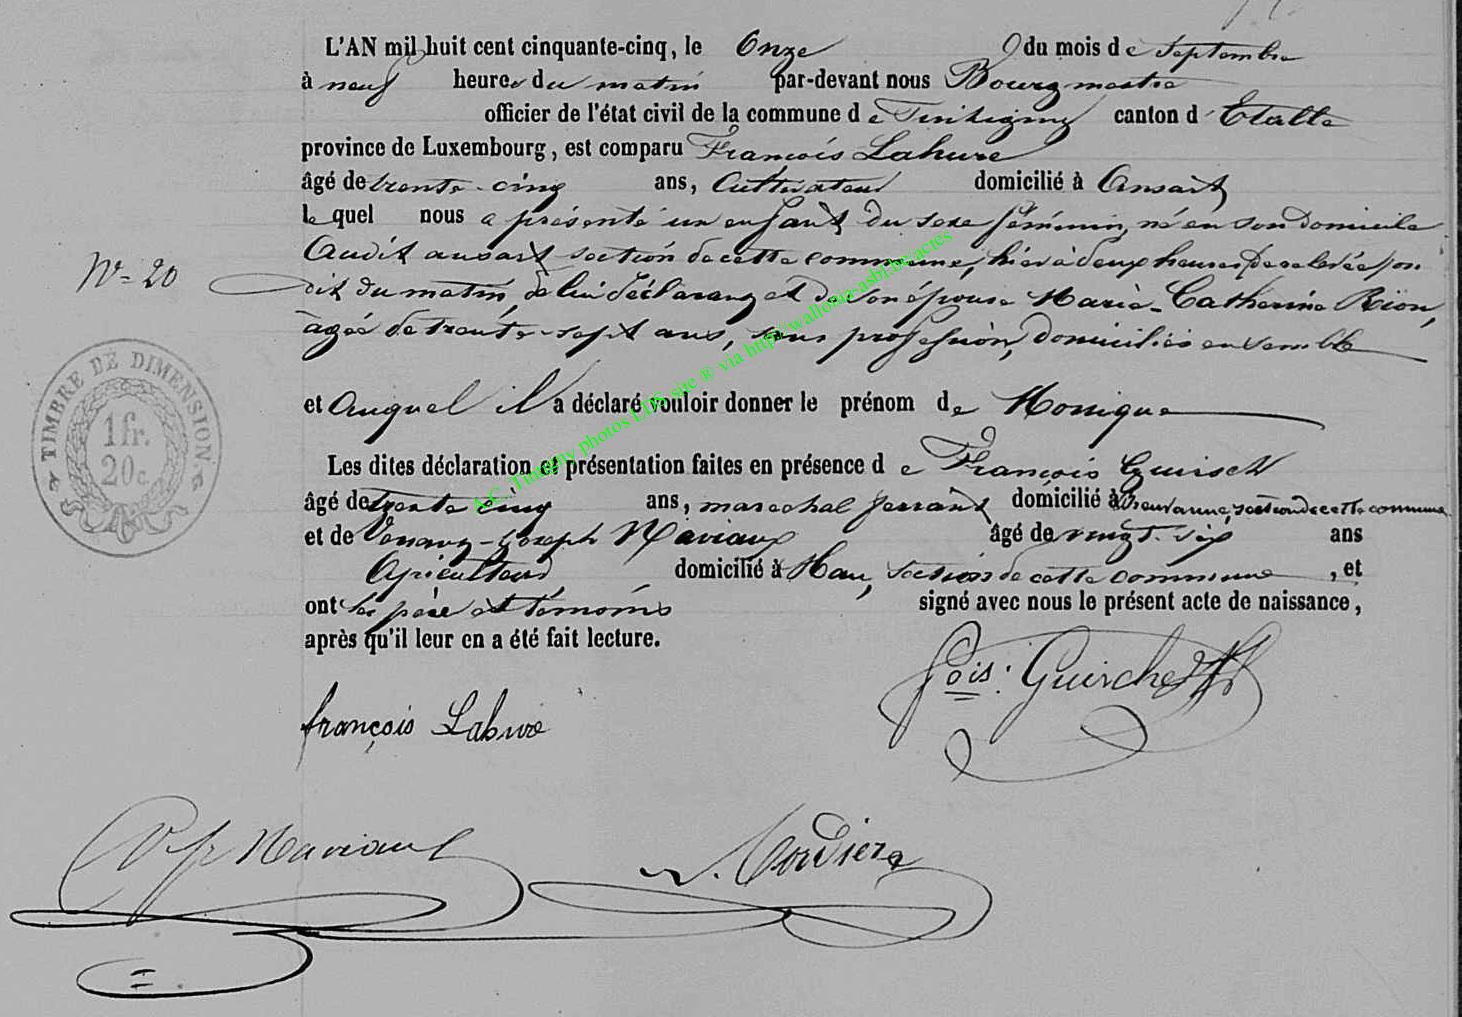 L'AN mil huit cent cinquante-cinq, le Onze du mois de Septembre
à neuf heures du matin par-devant nous Bourgmestre
officier de l'état civil de la commune de Tintigny canton d'Etalle
province de Luxembourg, est comparu François Lahure
âgé de trente-cinq ans, Cultivateur domicilié à Ansart
lequel nous a présenté un enfant du sexe féminin, né en son domicile
audit ansart section de cette commune, hier à deux heures
dit du matin, de lui déclarant et de son épouse Marie-Catherine Rion,
N° 20
âgée de trente-sept ans, sans profession, domiciliés ensemble
et auquel il a déclaré vouloir donner le prénom de Monique
Les dites déclaration et présentation faites en présence de François Guirsch
âgé de trente cinq ans, marechal ferrant domicilié à section de cette commune
et de Joseph Naviaux âgé de vingt-six ans
Apiculteur domicilié à Han, section de cette commune, et
ont les père et témoins signé avec nous le présent acte de naissance,
après qu'il leur en a été fait lecture.
françois Lahure
fois: Guirche
Naviaux
TIMBRE DE DIMENSION.
1 fr.
20 c.
A.C. Tintigny photos LDS site ® via http://wallonia-asbl.be/actes